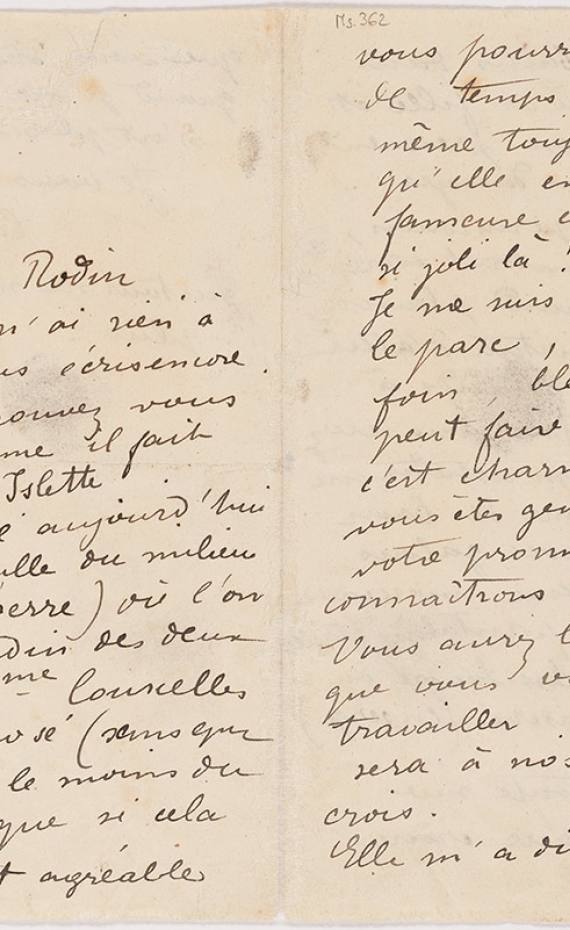 Ms. 362
Rodin
n'ai rien à
us écrisencore.
ouvez vous
me il fait
Islette
é aujourd'hui
lle du milieu
serre) où l'on
din des deux
me Courcelles
osé (sans que
le moins du
que si cela
t agréable
vous pourr
de temps
même touj
qu'elle en
fameuse c
si joli là!
Je me suis
le parc,
foin, blé
peut faire
c'est charm
vous êtes gen
votre prom
connaîtrons
Vous aurez l
que vous v
travailler
sera à nos
crois.
Elle m'a di